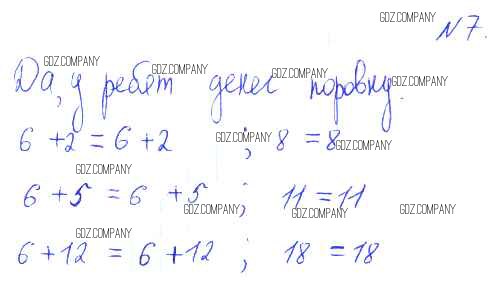 GDZ.COMPANY
N 7.
GDZ.COMPANY GDZ.COMPANY GDZ.COMPANY GDZ.COMPANY
Да, у ребят денег поровну.
6 + 2 = 6 + 2 ; 8 = 8
GDZ.COMPANY
GDZ.COMPANY
6 + 5 = 6 + 5 ; 11 = 11
GDZ.COMPANY GDZ.COMPANY GDZ.COMPANY
GDZ.COMPANY
6 + 12 = 6 + 12 ; 18 = 18